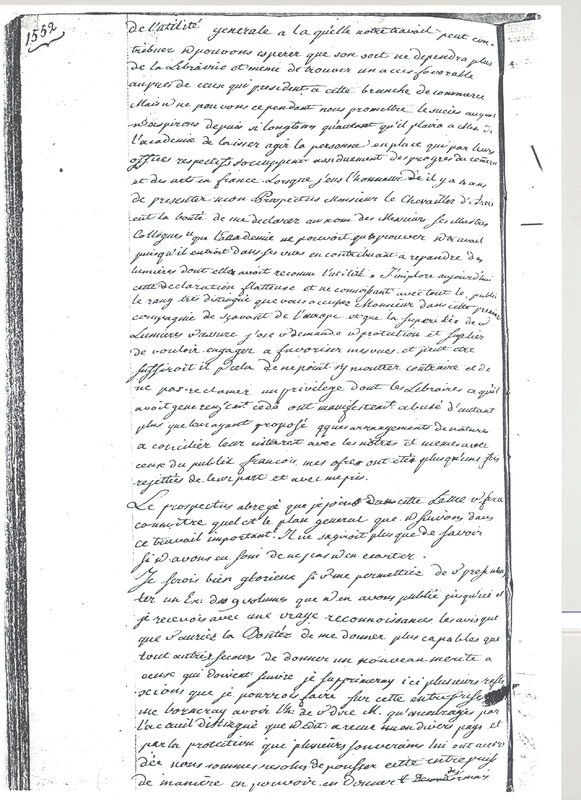 1552
de l'utilité generale a la qu'elle notre travail peut con-
tribuer nous pouvons esperer que son sort ne dependra plus
de la Librairie et meme de trouver un acces favorable
aupres de ceux qui president a cette branche de commerce
Mais ne pouvons cependant nous promettre le succès auquel
aspirons depuis si longtems qu'autant qu'il plaira a de
l'academie de laisser agir la personne en place qui par leurs
offices respectifs s'occuppent assiduement des progrès du commerce
et des arts en france. Lorsque j'eus l'honneur il y a ans
de presenter mon Prospectus Monsieur le Chevallier d'
eut la bonté de me declarer au nom des Messieurs ses illustres
Collegues "que l'academie ne pouvoit qu'approuver travail
puisqu'il entroit dans ses vues en contribuant a repandre des
lumières dont elle avoit reconnu l'utilité" J'implore aujourd'hui
cette declaration flatteuse et ne connoissant avec tout le public
le rang très distingué que vous occupez Monsieur dans cette premiere
compagnie de Sçavant de l'europe et que la superiorité de
Lumieres assure j'ose demander protection et suplier
de vouloir engager a favoriser mes vues, et peut etre
suffiroit il p cela de ne point s'y montrer contraire et de
ne pas reclamer un privilège dont les Libraires a qui
avoit été cedé ont manifestement abusé d'autant
plus que leur ayant proposé qques arrangements de nature
a concilier leur interet avec les nôtres et memes avec
ceux du public francois, mes ofres ont étés plus qu'une fois
rejettées de leur part et avec mepris.
Le prospectus abregé que je joins dans cette Lettre fera
connoitre quel est le plan general que suivons dans
ce travail important. Il ne s'agiroit plus que de savoir
si avons eu soin de ne pas en ecarter.
Je serois bien glorieux si me permettriez de presen-
ter un Ex. des 9 volumes que en avons publié jusqu'ici et
je recevois avec une vraye reconnoissance les avis que
que auriez la Bontés de me donner plus capables que
tout autres secours de donner un nouveau merite a
ceux qui doivent suivre je supprimeray ici plusieurs refle-
xions que je pourrois faire sur cette entreprise
me borneray avoir l'h. de dire M. qu'encouragés par
l'accueil distingué que edit. a recue en divers pays et
par la protection que plusieurs souverains lui ont accor-
dée nous sommes resolus de pousser cette entreprise
de maniere en pouvoir en donner